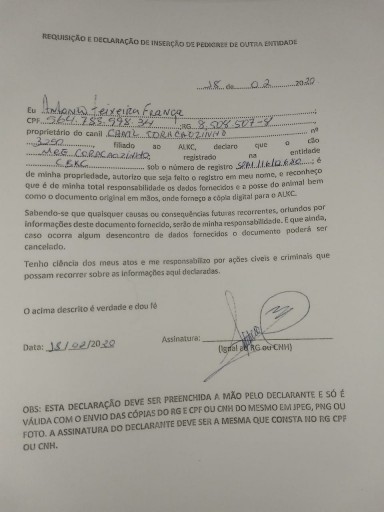 REQUISIÇÃO E DECLARAÇÃO DE INSERÇÃO DE PEDIGREE DE OUTRA ENTIDADE
18 de 02 2020
Eu Antonio Teixeira França
CPF 964.788.998.34 RG 8.508.507-8
proprietário do canil CANIL CORACAOZINHO nº
3250, filiado ao ALKC, declaro que o cão
MEE CORACAOZINHO registrado na entidade
CBKC sob o número de registro é
de minha propriedade, autorizo que seja feito o registro em meu nome, e reconheço
que é de minha total responsabilidade os dados fornecidos e a posse do animal bem
como o documento original em mãos, onde forneço a cópia digital para o ALKC.
Sabendo-se que quaisquer causas ou consequências futuras recorrentes, oriundos por
informações deste documento fornecido, serão de minha responsabilidade. E que ainda,
caso ocorra algum desencontro de dados fornecidos o documento poderá ser
cancelado.
Tenho ciência dos meus atos e me responsabilizo por ações cíveis e criminais que
possam recorrer sobre as informações aqui declaradas.
O acima descrito é verdade e dou fé
Data: 18/02/2020 Assinatura:
(Igual ao RG ou CNH)
OBS: ESTA DECLARAÇÃO DEVE SER PREENCHIDA A MÃO PELO DECLARANTE E SÓ É
VÁLIDA COM O ENVIO DAS CÓPIAS DO RG E CPF OU CNH DO MESMO EM JPEG, PNG OU
FOTO. A ASSINATURA DO DECLARANTE DEVE SER A MESMA QUE CONSTA NO RG CPF
OU CNH.